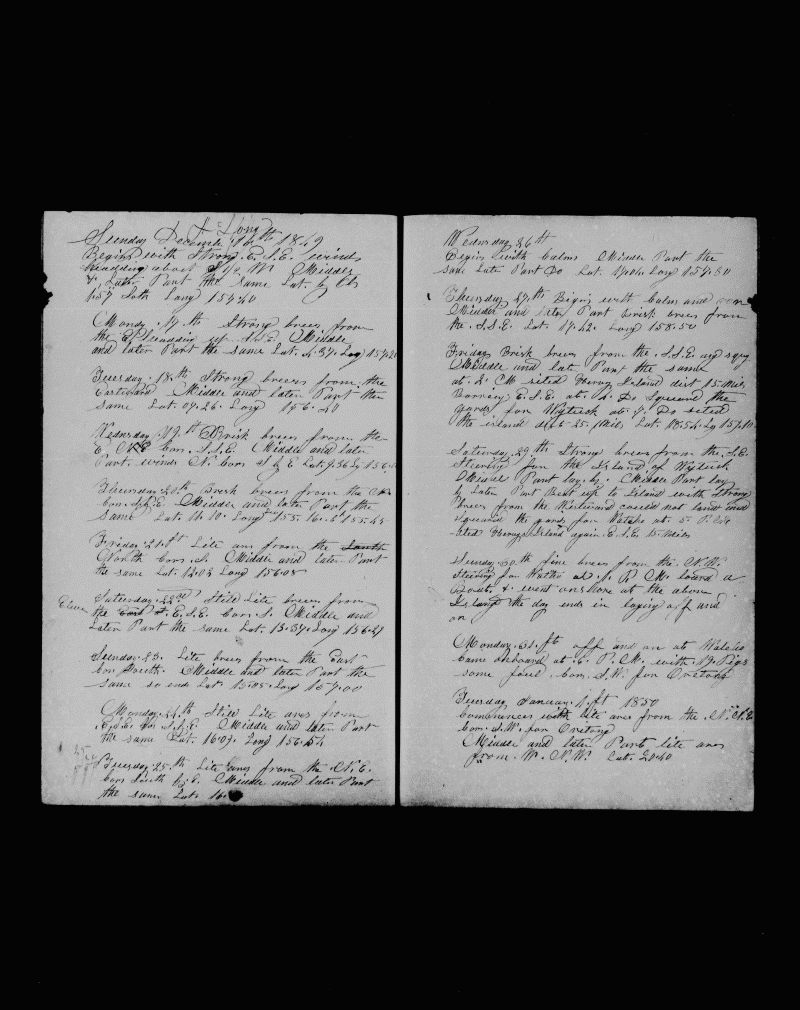 Long
Sunday Decembr 16th 1849
Begins with Strong E.S.E. winds
heading about S W Middle
& Later Part the Same Lat. by Ob
1.57 South Long 157.40
Monday 17th Strong brees from
the E heading up Middle
and later Part the same Lat. 4.37 Long 157.2
Tuesday 18th Strong breeses from the
Eastward Middle and later Part the
same Lat. 07.26 Long 156.40
Wednsday 19 Brisk brees from the
E Cors S.S.E. Middle and later
Part winds N. Cors S & E Lat. 9.36 Lg 156
Thursday 20th Brisk brees from the
Cors S.S.E. Middle and later Part the
same Lat. 11.10 Long 155.45
Friday 21st Lite airs from the South
North Cors S. Middle and later Part
the same Lat. 12.03 Long 156.05
Saturday 22nd Still Lite brees from
the East E.S.E. Cors S. Middle and
Later Part the same Lat. 13.37 Long 156.27
Sunday 23. Lite brees from the East
Cors South. Middle and later Part the
same so ends Lat. 15.05 Long 157.00
Monday 24th Still Lite ares from
E.S.E. Cors S.S.E. Middle and later Part
the same Lat. 16.07. Long 156.54
25
Tuesday 25th Lite ares from the N.E.
Cors South by E. Middle and later Part
the same Lat. 16.
Wednsday 26th
Begins with Calms Middle Part the
same Later Part Do Lat. Long 157.30
Thursday 27th Begins with Calm and
Middle and later Part brisk brees from
the S.S.E. Lat. 17.42. Long 158.50
Friday Brisk brees from the S.S.E. and
Middle and late Part the same
at 2 M sited Island dist 15 Miles
Bearing E.S.E. at 4 Do squared the
yards for Wytuck at 7 Do sited
the island dist 25 Miles Lat. 18.54 Lg 157.10
Saturday 29th Strong brees from the S.E.
Steering for the Island of Wytuck
Middle Part lay by. Middle Part lay
by Later Part Beat up to Island with Strong
Brees from the Westward could not land and
squared the yards for Watake at 5 P.M.
sited Island again E.S.E. 15 Miles
Sunday 30th fine brees from the N.W.
Steering for at 1 P.M. lowerd a
Boat & went on shore at the above
Island the day ends in laying off and
on
Monday 31st off and on at
Came onboard at 6 P.M. with 19 Pigs
some fowl Cors S.W. for
Tuesday January 1st 1850
Commences with lite ares from the N.N.E
Cors S.W. for
Middle and later Part lite ares
from W.N.W. Lat. 20.40